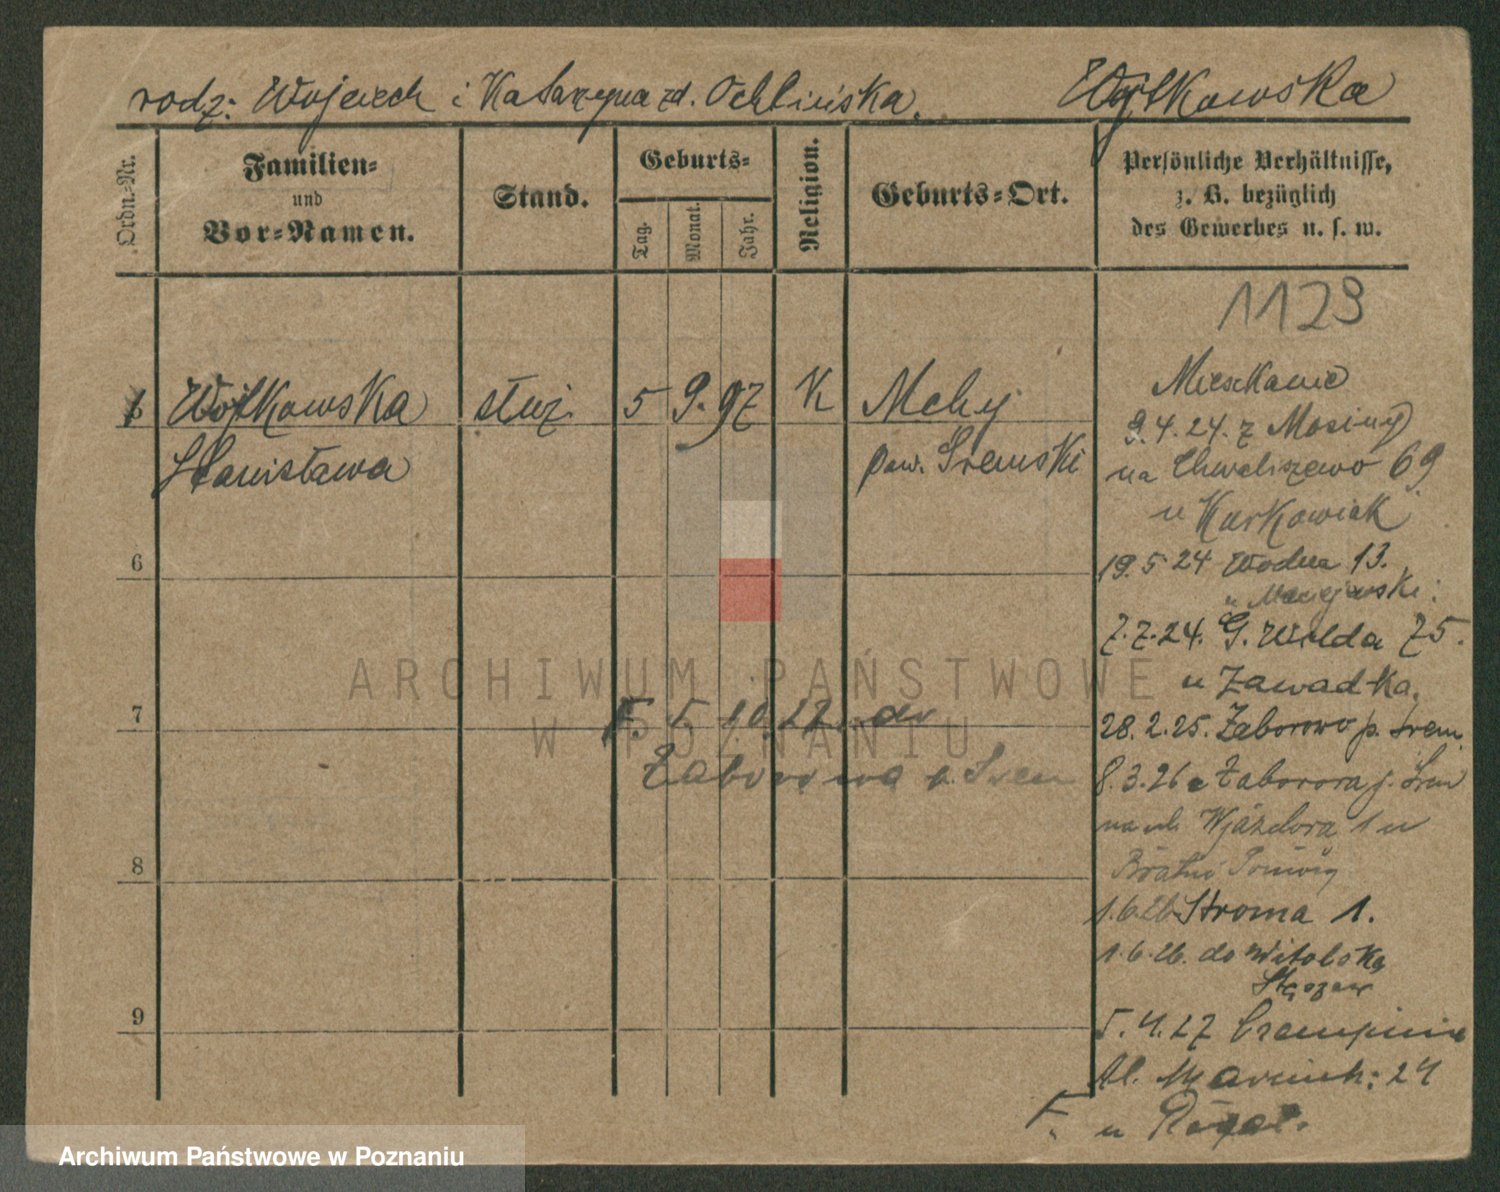 rodz: Wojciech i Katarzyna zd. Ochlińska.
Wójtkowska
Ordn.=Nr.
Familien=
und
Vor=Namen.
Stand.
Geburts=
Tag.
Monat.
Jahr.
Religion.
Geburts=Ort.
Persönliche Verhältnisse,
z. B. bezüglich
des Gewerbes u. s. w.
1129
Wójtkowska
służ.
5
9.
97
K
Mchy
Stanisława
pow. Śremski
Mieszkanie
9.4.24. z Mosiny
na Chwaliszewo 69
u Karkowiak
19.5.24 Wodna 13.
u Maciejewski:
7.7.24. G. Wilda 75.
u Zawadka.
28.2.25. Zaborowo p. Śrem.
8.3.26 z Zaborowa p. Śrem
na ul. Wjazdowa 1 u
Bratnia Pomoc
1.6.26 Stroma 1.
1.6.26. do Witolska
5.4.27
Al. Marcink: 24
F. u
6
7
F. 5 10.27. do
Zaborowa p. Śrem
8
9
ARCHIWUM PAŃSTWOWE
W POZNANIU
Archiwum Państwowe w Poznaniu